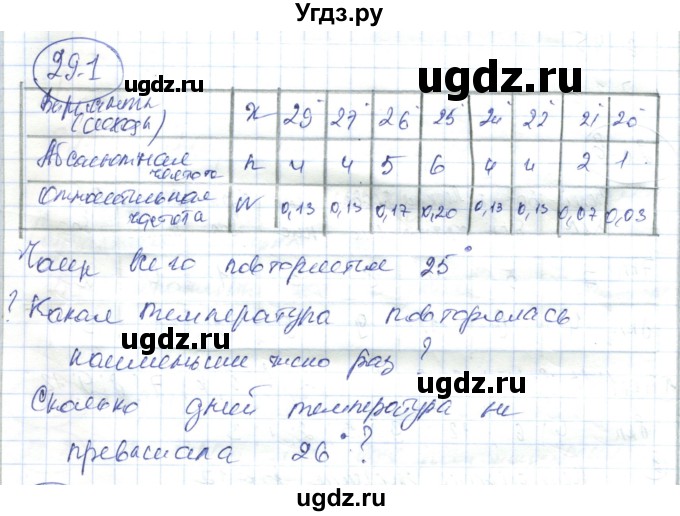 Угдз.ру
29.1
Варианты (исходы) X 29° 27° 26° 25° 24° 22° 21° 20°
Абсолютная частота n 4 4 5 6 4 4 2 1
Относительная частота W 0,13 0,13 0,17 0,20 0,13 0,13 0,07 0,03
Чаще всего повторяется 25°
? Какая температура повторялась
наименьшее число раз?
Сколько дней температура не
превышала 26°?
ugdz.ru
ugdz.ru
ugdz.ru
ugdz.ru
ugdz.ru
ugdz.ru
ugdz.ru